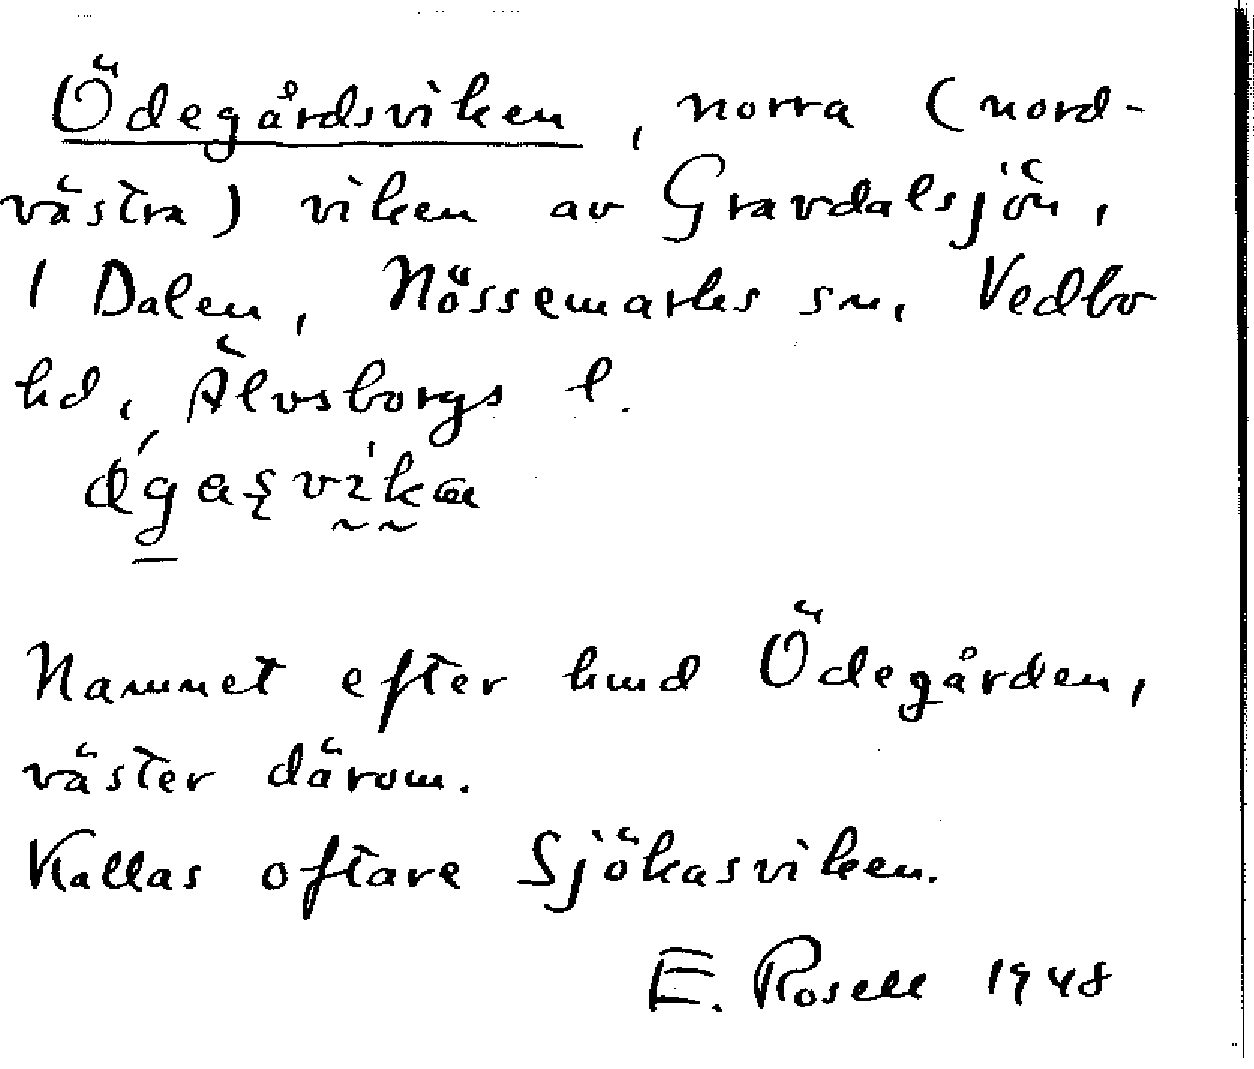 Ödegårdsviken, norra (nord-
västra) viken av Gravdalsjön,
I Dalen, Nössemarks sn, Vedbo
hd, Älvsborgs l.
Namnet efter hmd Ödegården,
väster därom.
Kallas oftare Sjökasviken.
E. Rosell 1948